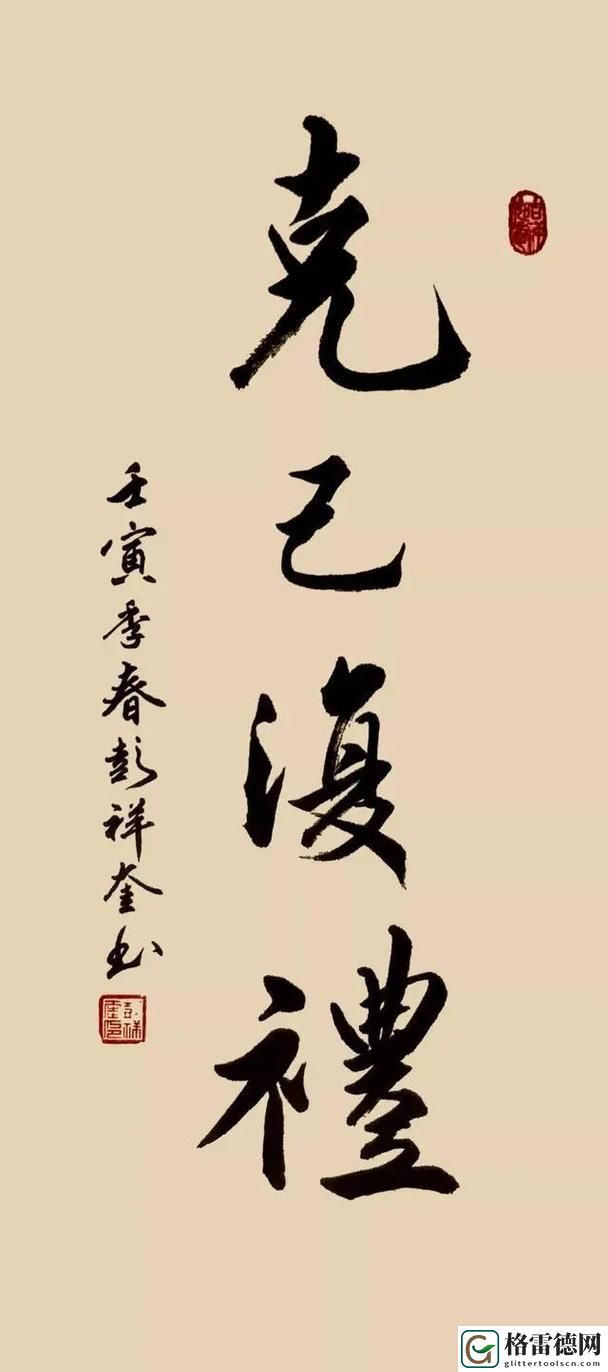 克己復禮
壬寅季春彭祥奎书
彭祥奎印
格雷德网
glittertoolscn.com